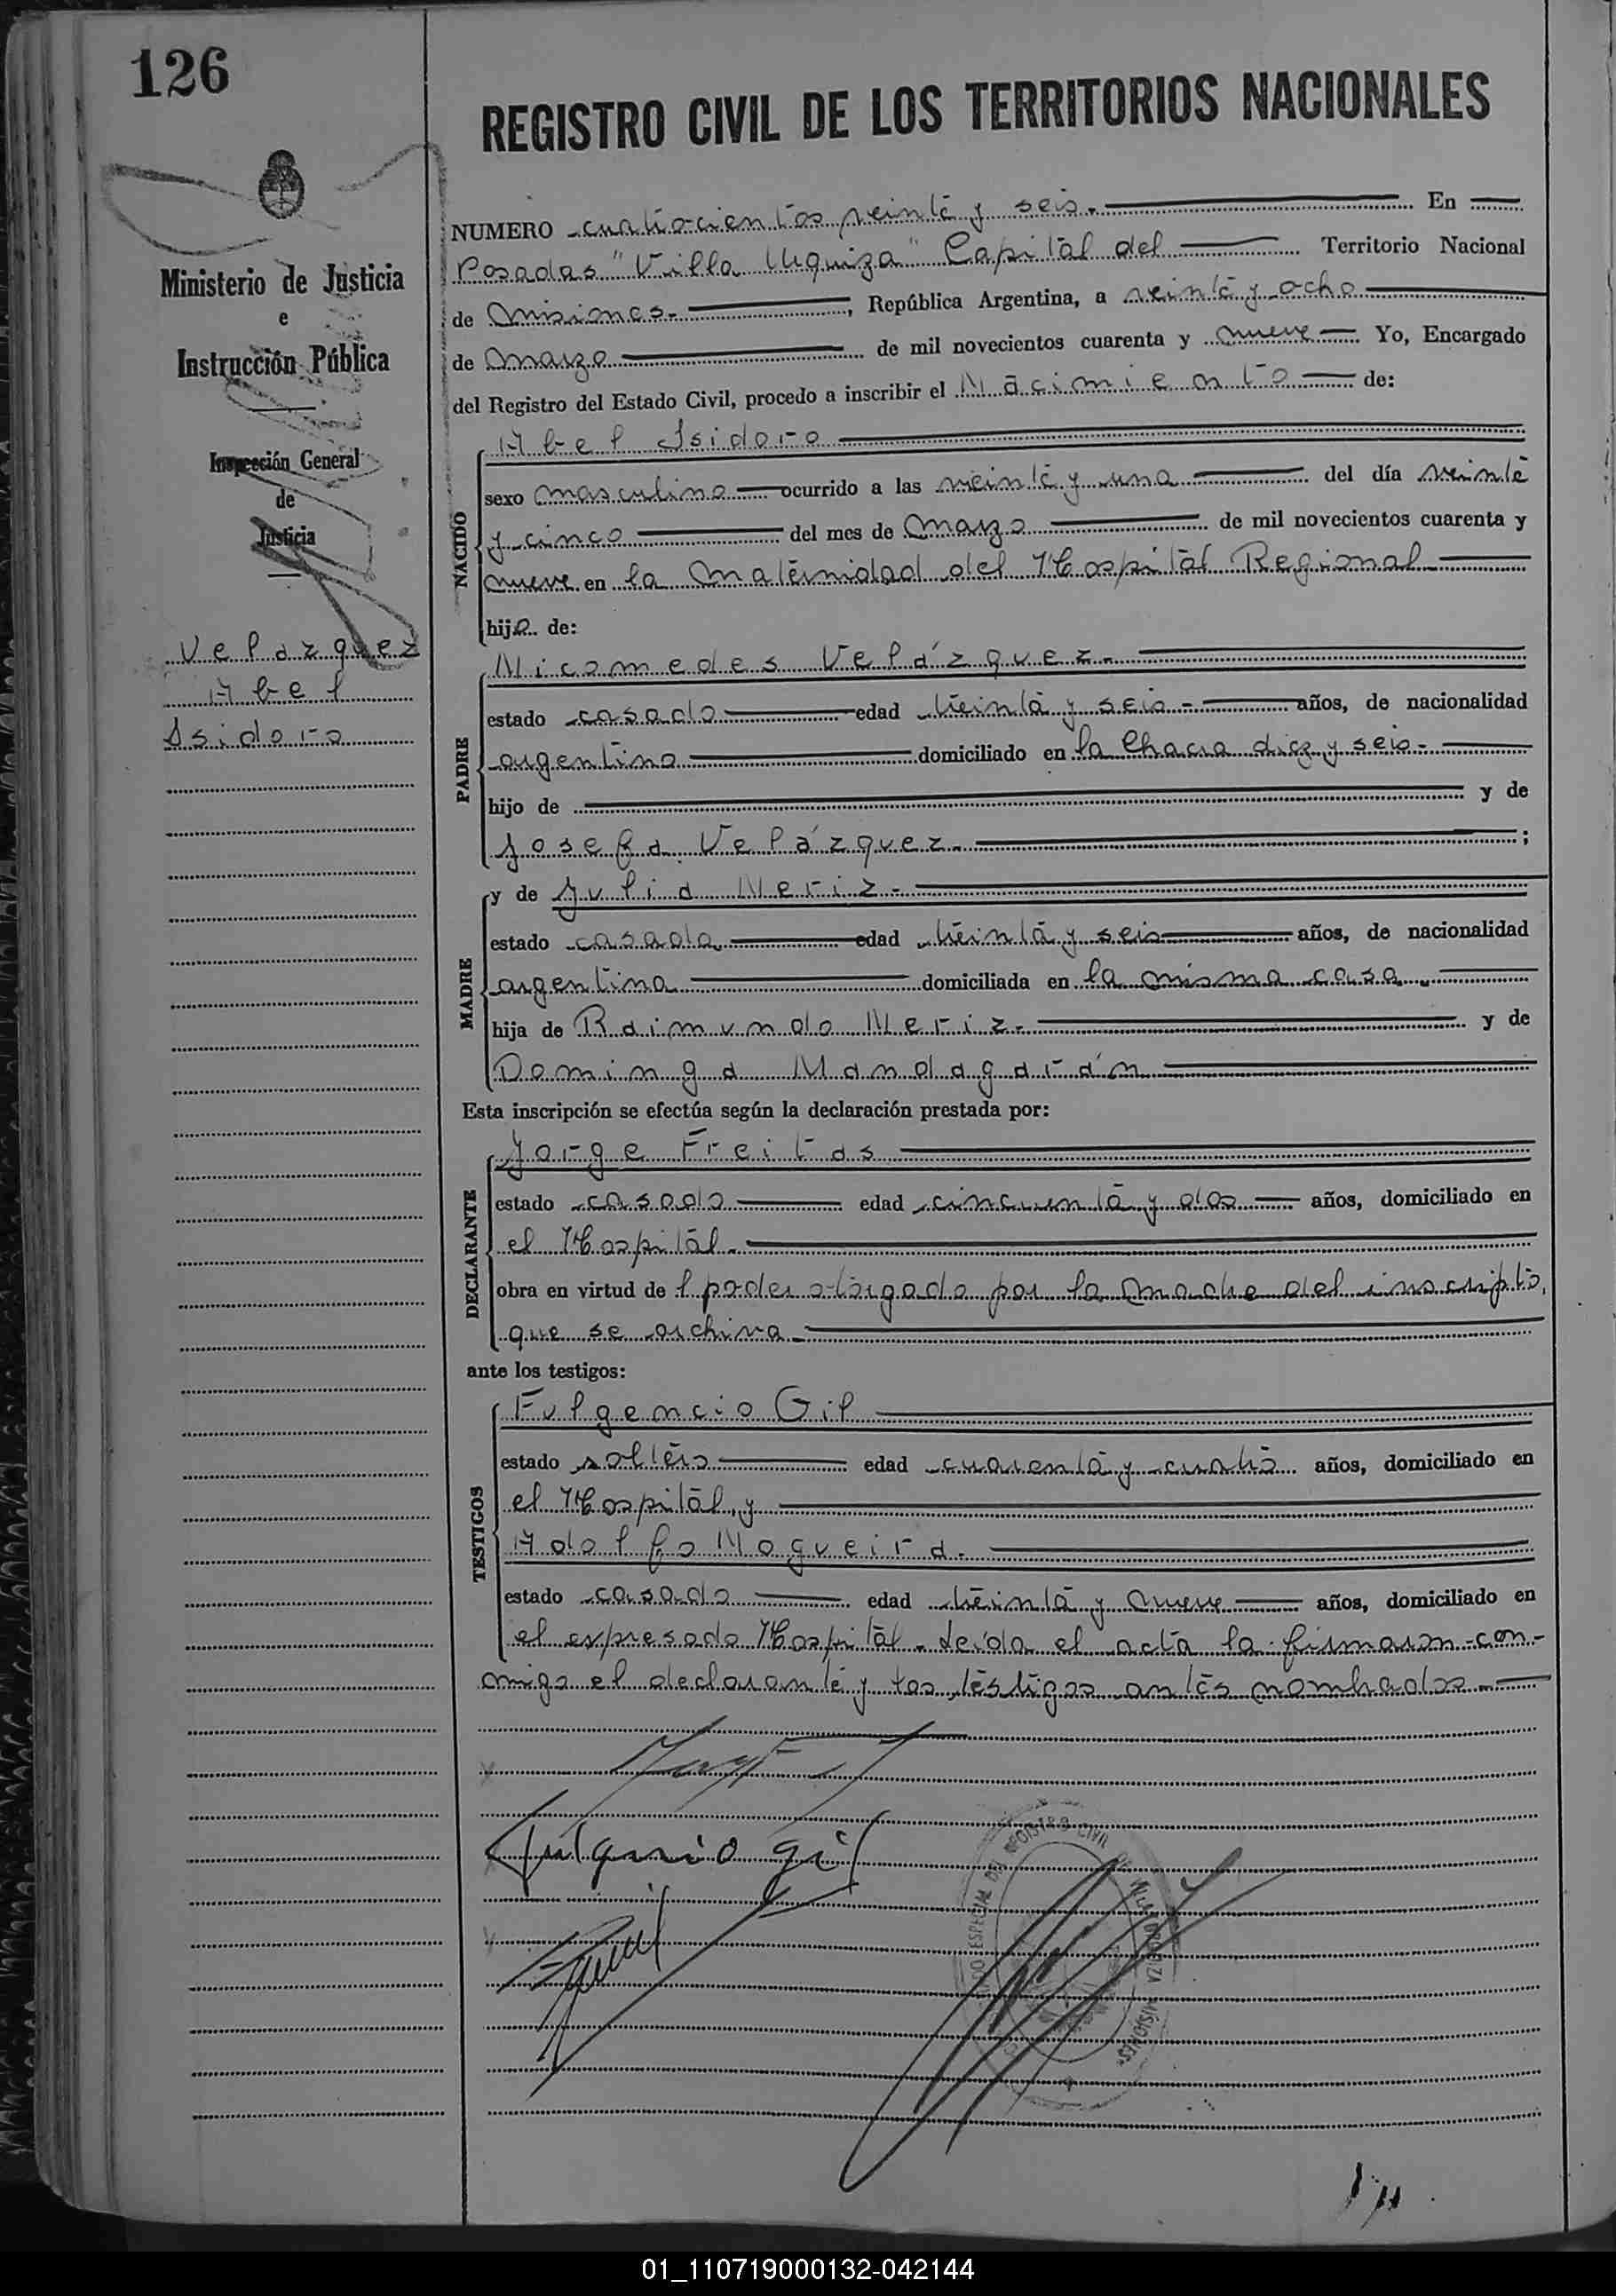 126
REGISTRO CIVIL DE LOS TERRITORIOS NACIONALES
Ministerio de Justicia
e
Instrucción Pública
Inspección General
de
Justicia
Velazquez
Abel
Isidoro
NUMERO cuatrocientos veinte y seis. En
Posadas "Villa Urquiza" Capital del Territorio Nacional
de Misiones. , República Argentina, a veinte y ocho
de Marzo de mil novecientos cuarenta y nueve Yo, Encargado
del Registro del Estado Civil, procedo a inscribir el Nacimiento de:
NACIDO
Abel Isidoro
sexo masculino ocurrido a las veinte y una del día veinte
y cinco del mes de Marzo de mil novecientos cuarenta y
nueve en la Maternidad del Hospital Regional
hijo de:
PADRE
Nicomedes Velázquez.
estado casado edad treinta y seis - años, de nacionalidad
argentino domiciliado en la Chacra diez y seis -
hijo de y de
Josefa Velázquez. ;
MADRE
y de Julia Neriz.
estado casada edad treinta y seis años, de nacionalidad
argentina domiciliada en la misma casa.
hija de Raimundo Neriz. y de
Dominga Mandagarán
Esta inscripción se efectúa según la declaración prestada por:
DECLARANTE
Jorge Freitas
estado casado edad cincuenta y dos años, domiciliado en
el Hospital.
obra en virtud de l poder otorgado por la madre del inscripto,
que se archiva.
ante los testigos:
TESTIGOS
Fulgencio Gil
estado soltero edad cuarenta y cuatro años, domiciliado en
el Hospital, y
Adolfo Nogueira.
estado casado edad treinta y nueve años, domiciliado en
el expresado Hospital. Leída el acta la firmaron con-
migo el declarante y los testigos antes nombrados.
Fulgencio Gil
REGISTRO CIVIL
01_110719000132-042144